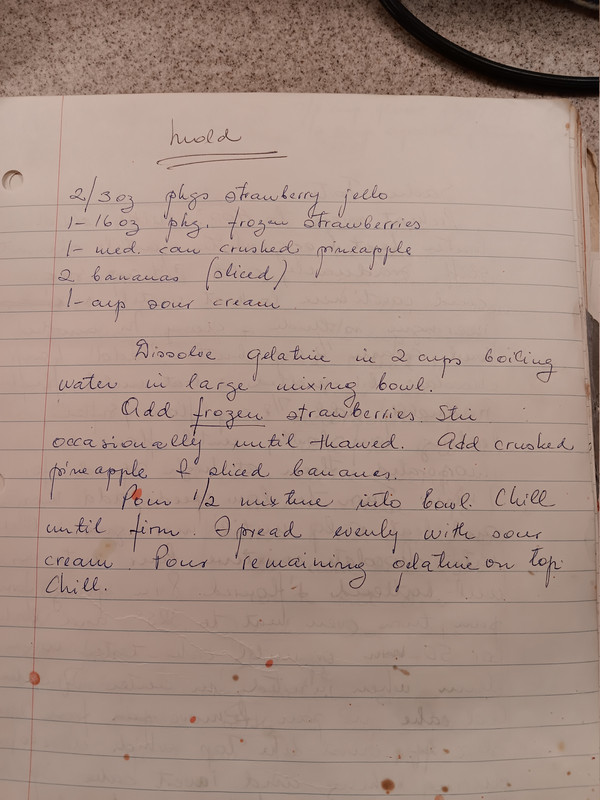 Mold
2/3oz pkgs strawberry jello
1-16oz pkg. frozen strawberries
1-med. can crushed pineapple
2 bananas (sliced)
1-cup sour cream
Dissolve gelatine in 2 cups boiling
water in large mixing bowl.
Add frozen strawberries. Stir
occasionally until thawed. Add crushed
pineapple & sliced bananas.
Pour 1/2 mixture into bowl. Chill
until firm. Spread evenly with sour
cream. Pour remaining gelatine on top.
Chill.